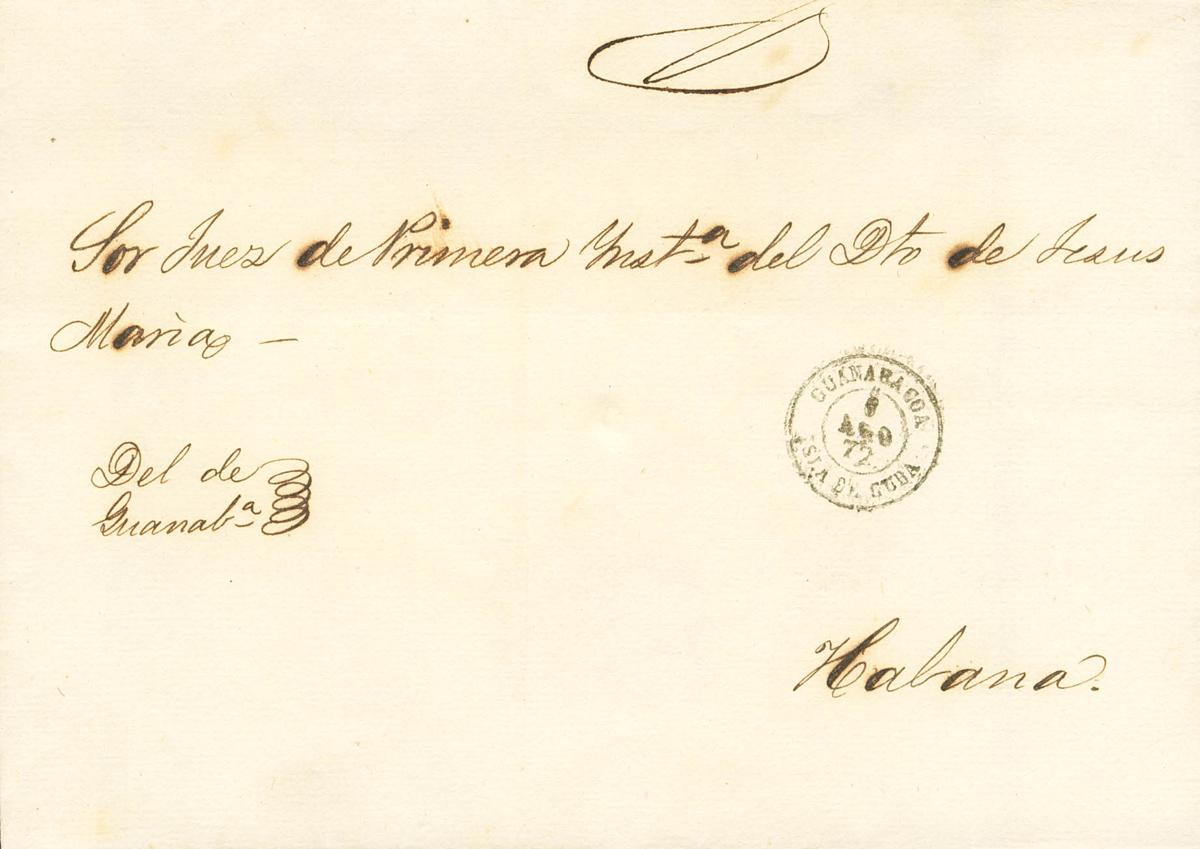 Sor Juez de Primera Ynst.ª del Dto de Jesus
Maria —
GUANABACOA
8
AGO
72
ISLA DE CUBA
Del de
Guanab.ª
Habana.